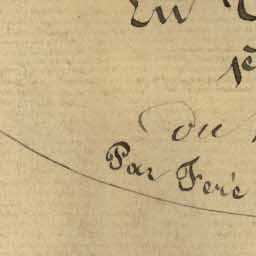 En
1è
du
Par Feré